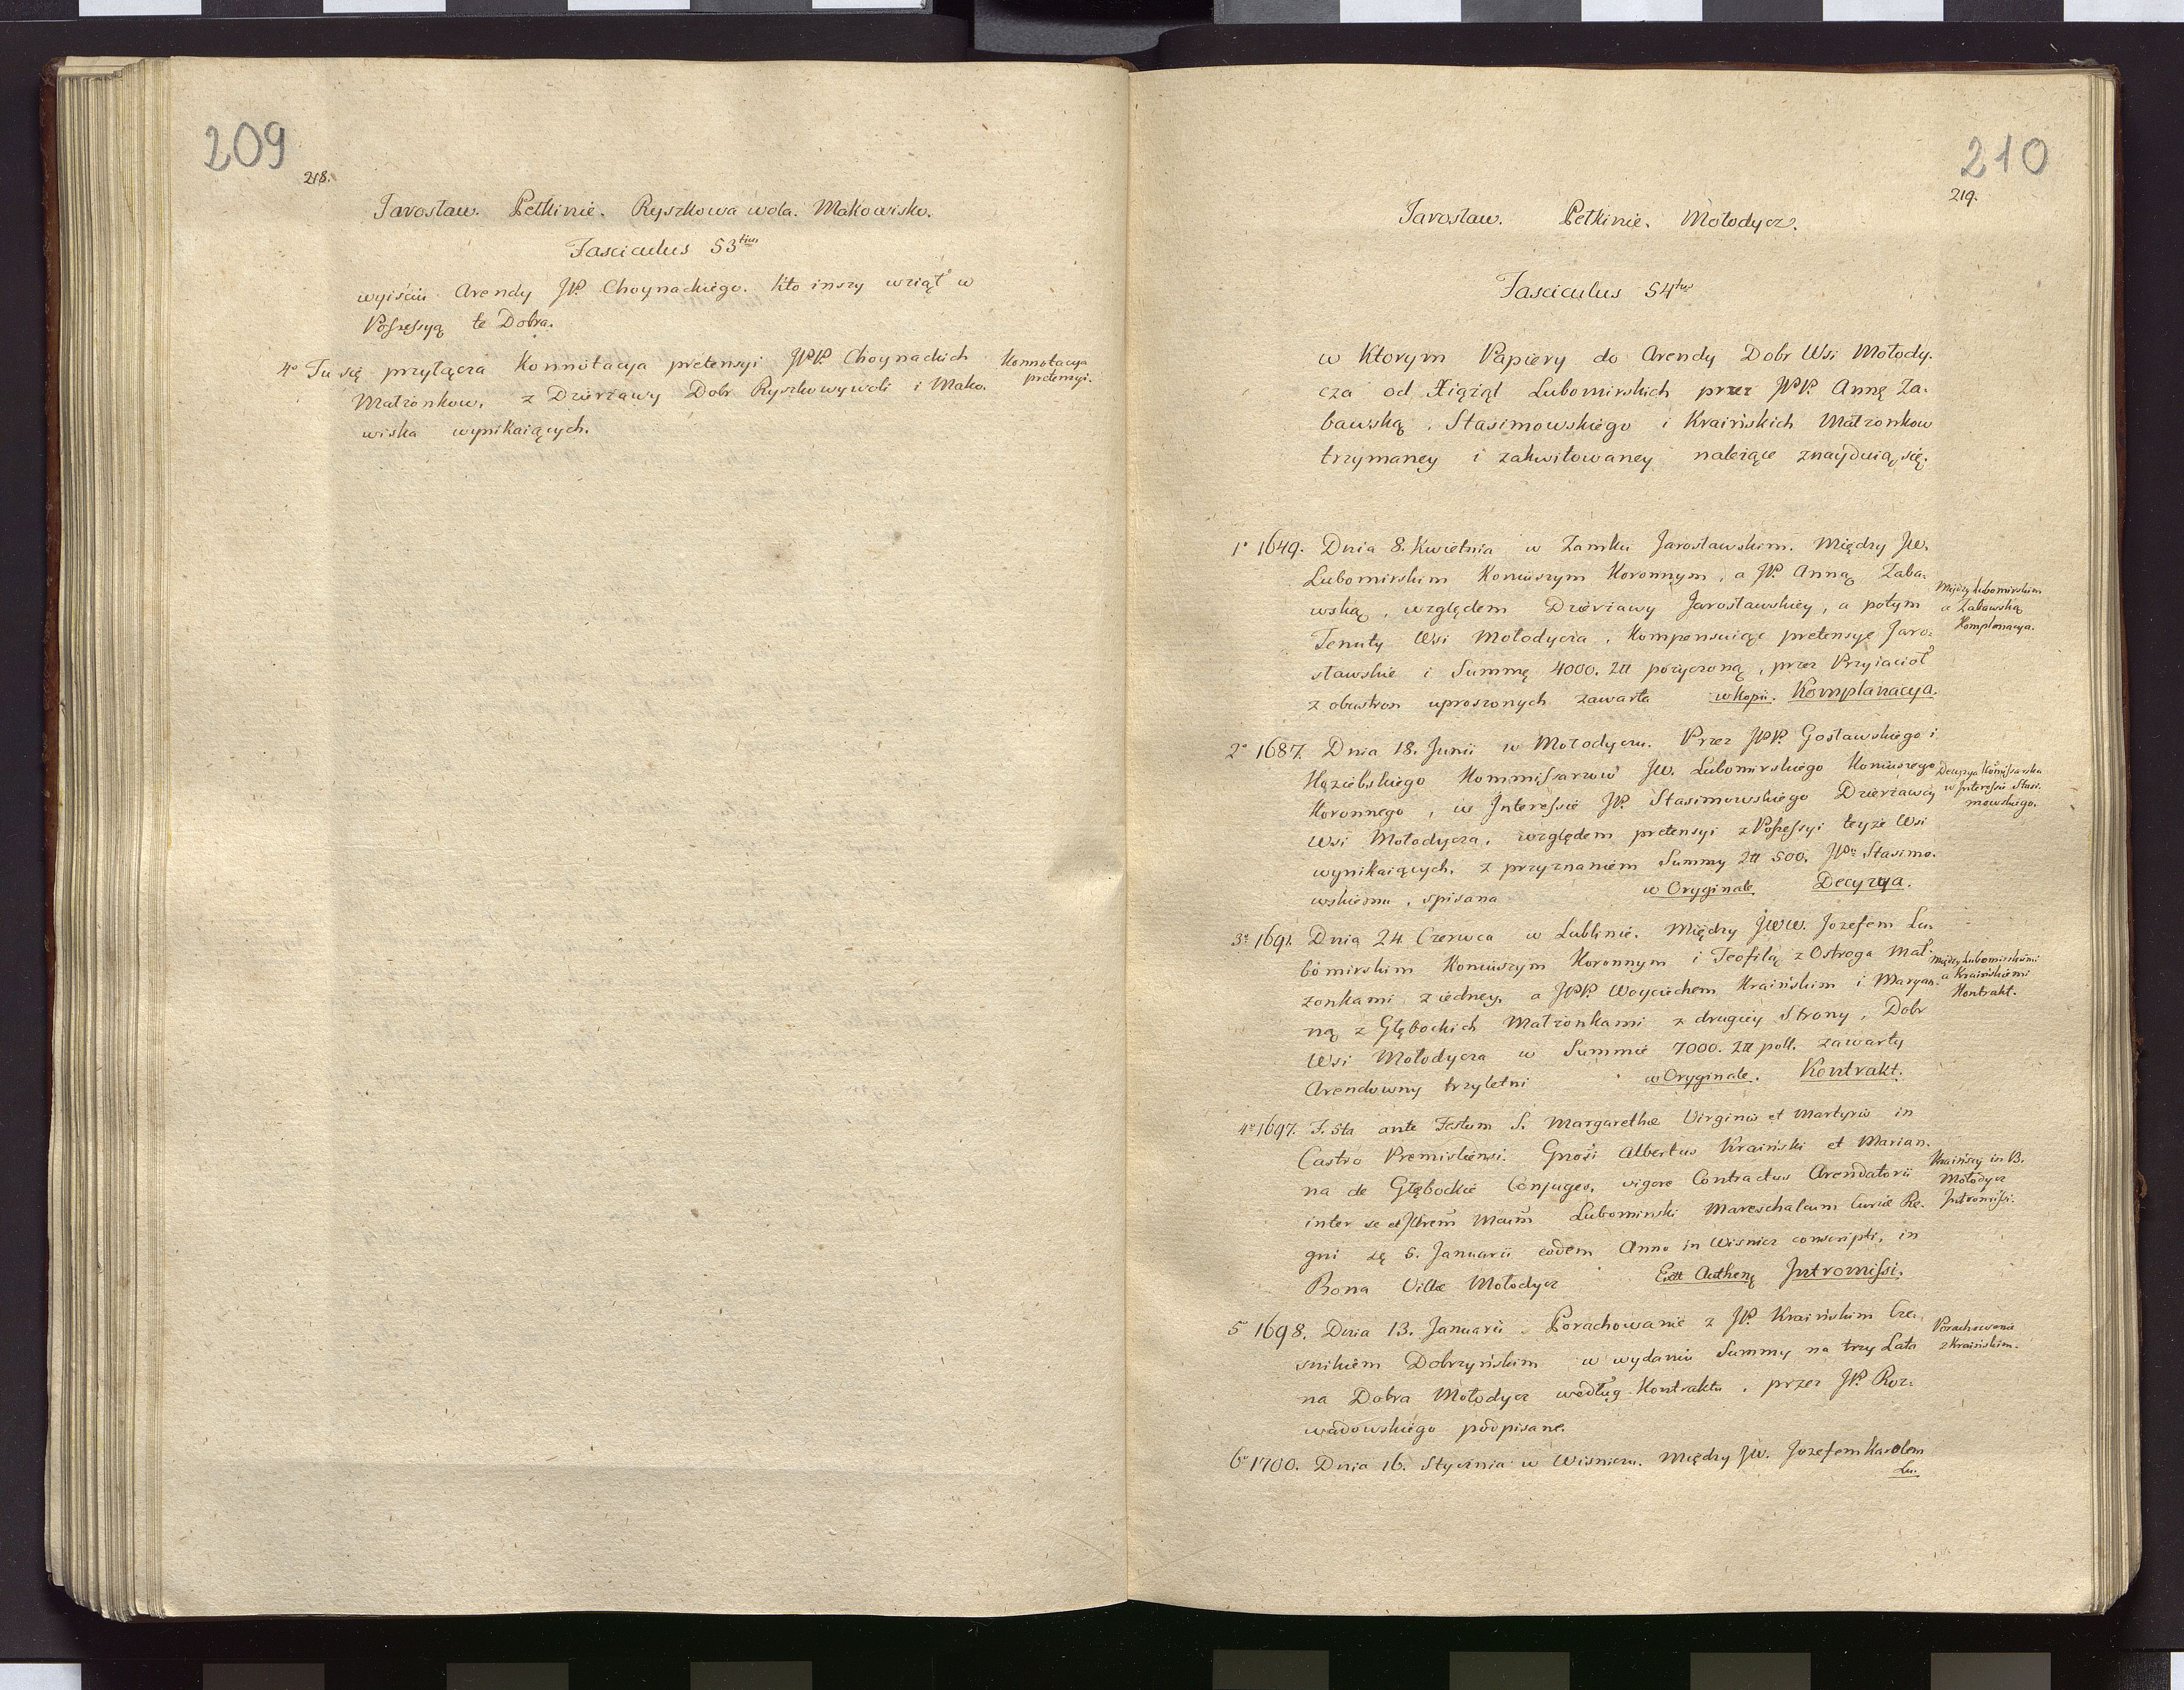 209
218.
Jarosław. Pełkinie. Ryszkowa wola. Makowisko.
Fasciculus 53tius
wyiściu Arendy JP. Choynackiego. kto inszy wziął w
Possessyą te Dobra.
4o Tu się przyłącza Konnotacya pretensyi JPP. Choynackich
Małżonkow, z Dzierżawy Dobr Ryszkowywoli i Mako.
wiska wynikaiących.
Konnotacya
pretensyi.
210
219.
Jarosław. Pełkinie. Mołodycz.
Fasciculus 54tus
w Ktorym Papiery do Arendy Dobr Wsi Mołody.
cza od Xiążąt Lubomirskich przez JPP. Annę Za.
bawską, Stasimowskiego i Kraińskich Małżonkow
trzymaney i zakwitowaney należące znayduią się.
1o 1649. Dnia 8. Kwietnia w Zamku Jarosławskim. Między JW.
Lubomirskim Koniuszym Koronnym, a JP. Anną Zaba.
wską, względem Dzierżawy Jarosławskiey, a potym
Tenuty Wsi Mołodycza, Kompensuiąc pretensye Jaro.
sławskie i Summę 4000. Złł pożyczoną, przez Przyiacioł
z obustron uproszonych zawarta w Kopii. Komplanacya.
Między Lubomirskim
a Zabawską
Komplanacya.
2o 1687. Dnia 18. Junii w Mołodyczu. Przez JPP. Gosławskiego i
Kommissarzow JW. Lubomirskiego Koniuszego
Koronnego, w Interessie JP. Stasimowskiego Dzierżawcy
Wsi Mołodycza, względem pretensyi z Possessyi teyże Wsi
wynikaiących, z przyznaniem Summy Złł 500. JPu Stasimo.
wskiemu, spisana w Oryginale. Decyzya.
Decyzya Kommissarska
w Interessie Stasi.
mowskiego.
3o 1691. Dnia 24. Czerwca w Lublinie. Między JWW. Jozefem Lu.
bomirskim Koniuszym Koronnym i Teofilą z Ostroga Mał.
żonkami z iedney, a JPP. Woyciechem Kraińskim i Maryan.
ną z Głębockich Małżonkami z drugiey Strony, Dobr
Wsi Mołodycza w Summie 7000. Złł poll. zawarty
Arendowny trzyletni w Oryginale. Kontrakt.
Między Lubomirskiemi
a Kraińskiemi
Kontrakt.
4o 1697. F. 5ta ante Festum S. Margarethæ Virginis et Martyris in
Castro Premisliensi. Gnosi Albertus Kraiński et Marian.
na de Głębockie Conjuges, vigore Contractus Arendatorii
inter se et Lubomirski Mareschalcum Curiæ Re.
gni 6. Januarii eodem Anno in Wisnicz conscripti, in
Bona Villæ Mołodycz Extt Authen Intromissi.
Kraińscy in B.
Mołodycz
Intromissi.
5o 1698. Dnia 13. Januarii. Porachowanie z JP. Kraińskim Cze.
snikiem Dobrzyńskim w wydaniu Summy na trzy Lata
na Dobra Mołodycz według Kontraktu, przez JP. Roz.
wadowskiego podpisane.
Porachowanie
z Kraińskim.
6o 1700. Dnia 16. Stycznia w Wisniczu. Między JW. Jozefem Karolem
Lu.